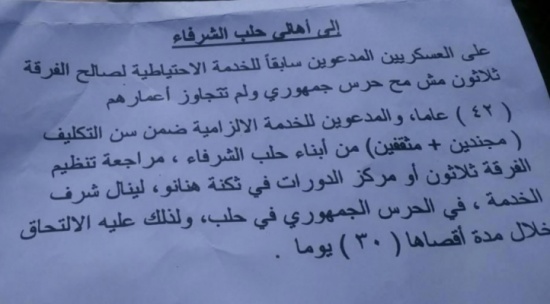 إلى أهالي حلب الشرفاء
على العسكريين المدعوين سابقاً للخدمة الاحتياطية لصالح الفرقة
ثلاثون مش مح حرس جمهوري ولم تتجاوز أعمارهم
( ٤٢ ) عاما، والمدعوين للخدمة الالزامية ضمن سن التكليف
( مجندين + مثقفين) من أبناء حلب الشرفاء ، مراجعة تنظيم
الفرقة ثلاثون أو مركز الدورات في ثكنة هنانو، لينال شرف
الخدمة ، في الحرس الجمهوري في حلب، ولذلك عليه الالتحاق
خلال مدة أقصاها ( ٣٠ ) يوما .